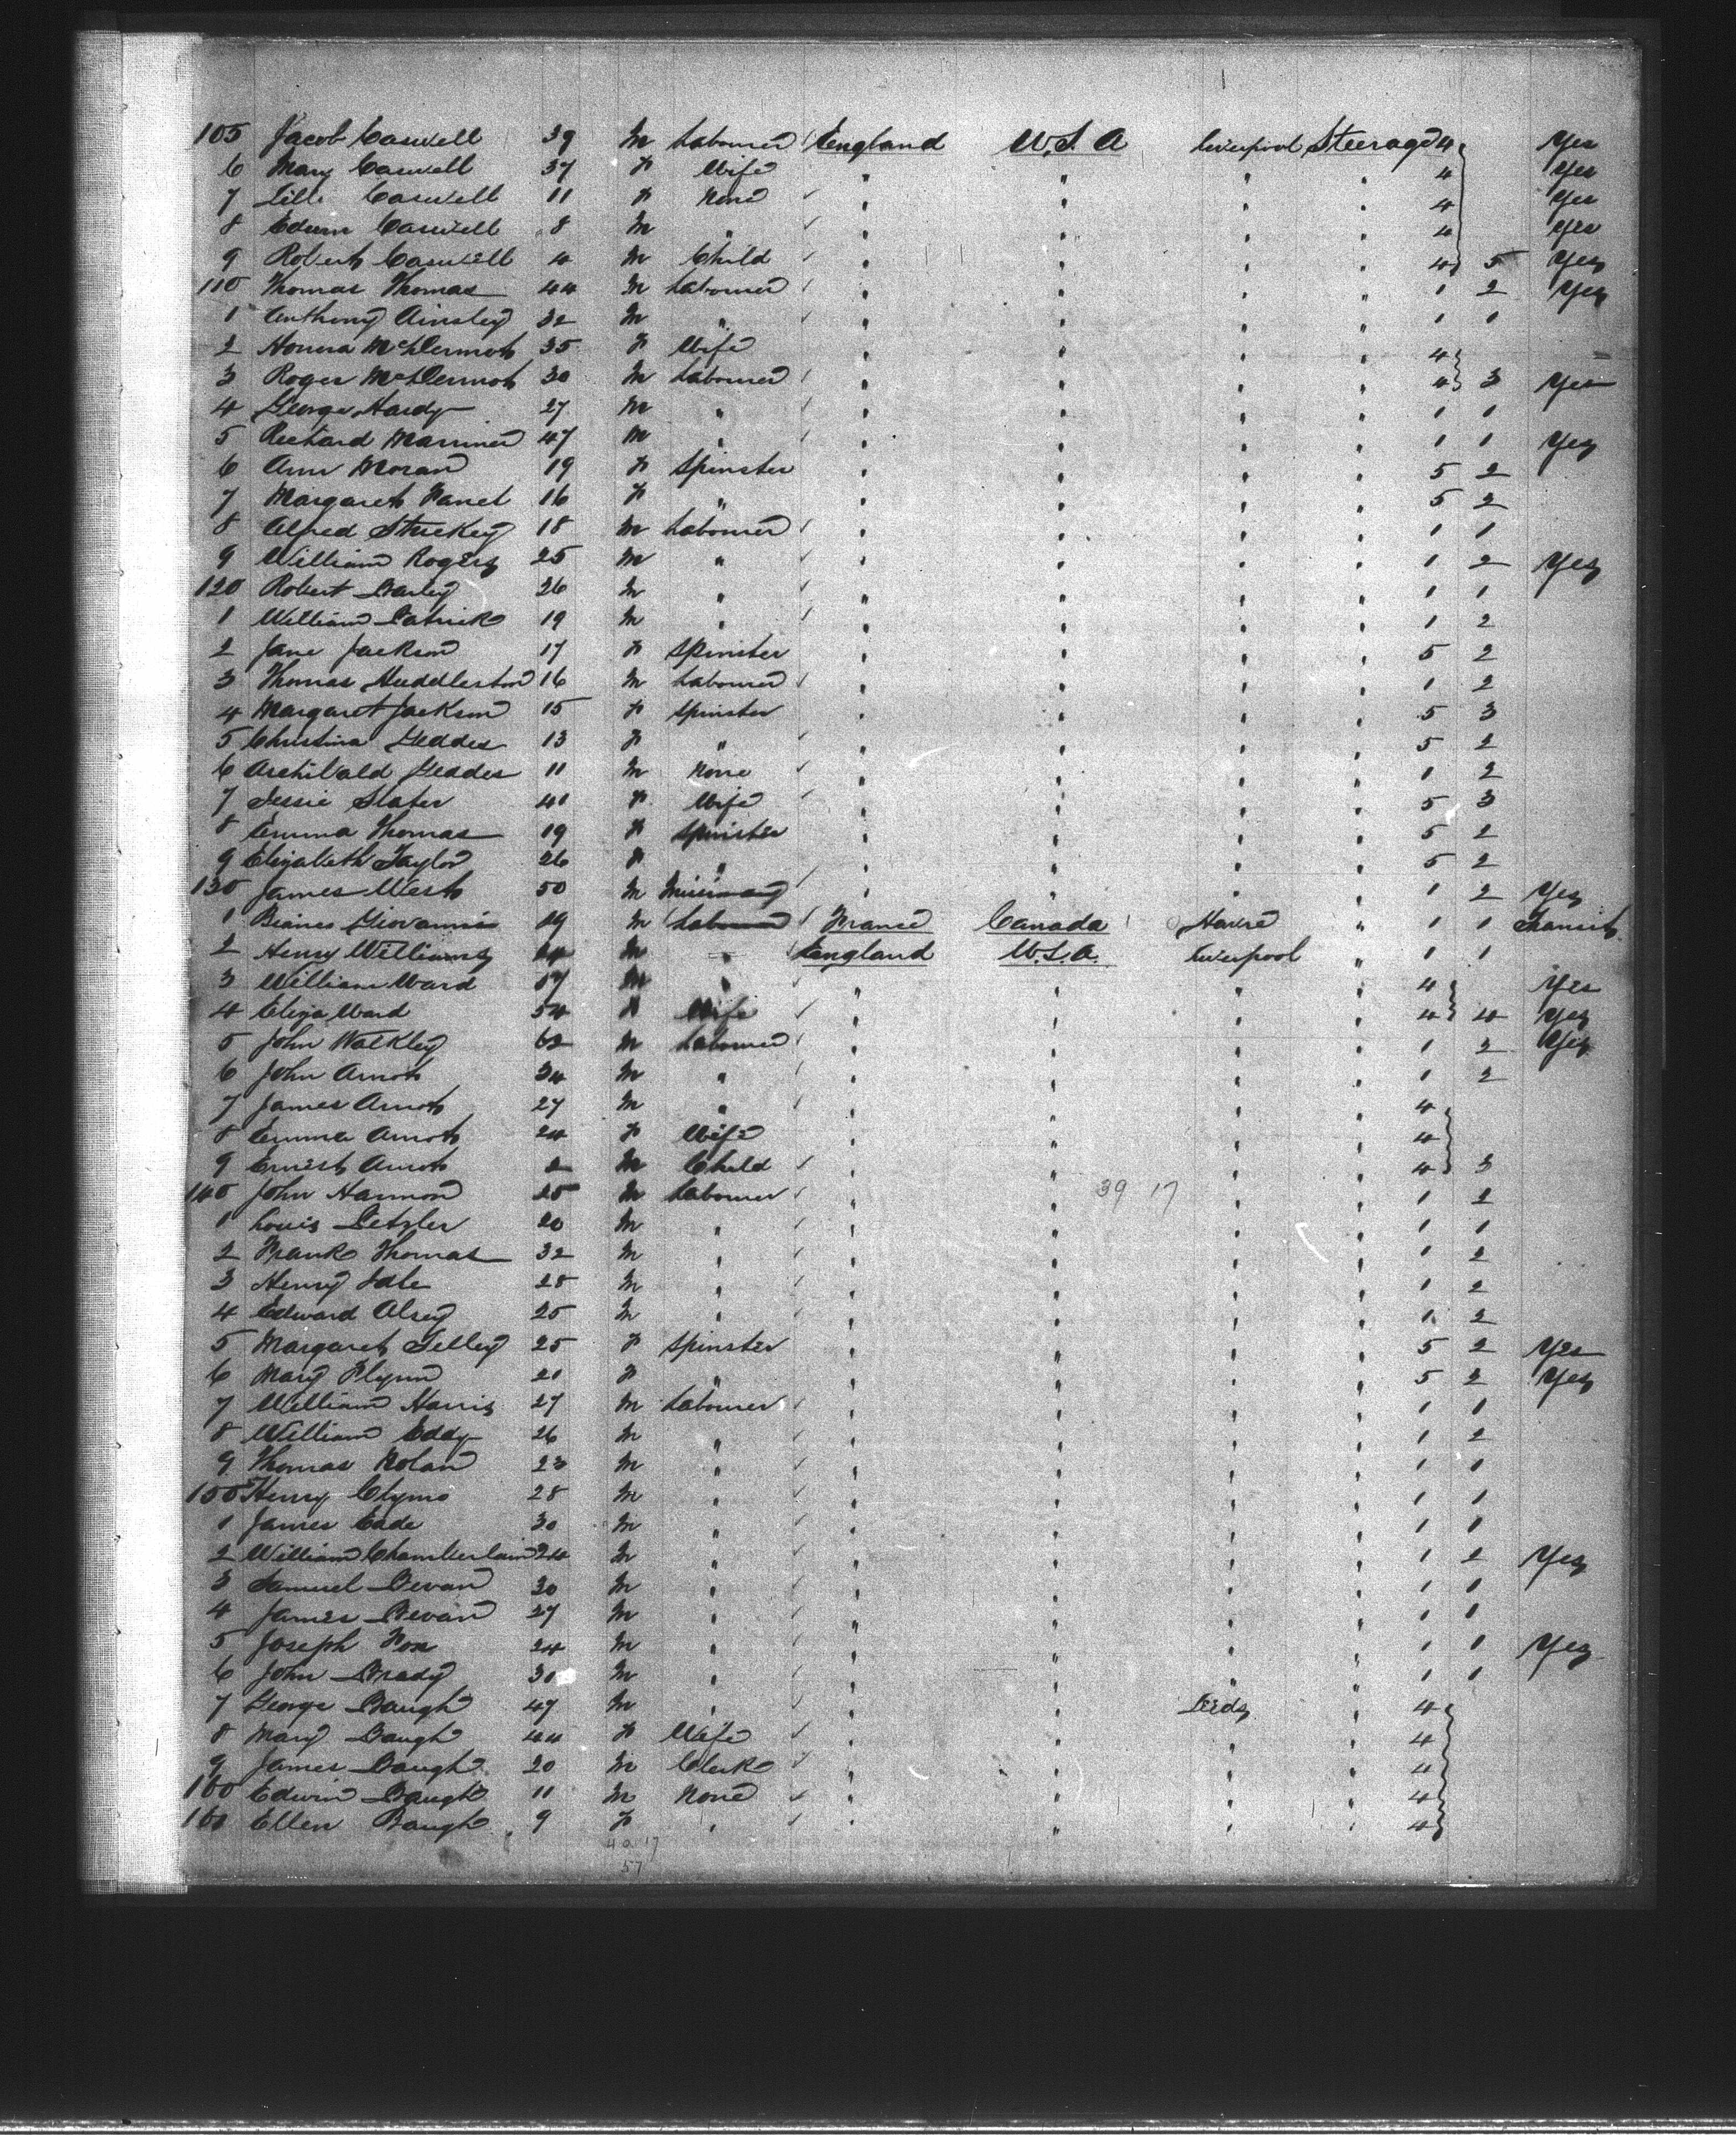 105 Jacob Caswell 39 M Labourer England U.S.A Liverpool Steerage 4 Yes
6 Mary Caswell 37 F Wife " " " " 4 Yes
7 Lilli Caswell 11 F None " " " " 4 Yes
8 Edwin Caswell 8 M " " " " " 4 Yes
9 Robert Caswell 4 M Child " " " " 4 5 Yes
110 Thomas Thomas 44 M Labourer " " " " 1 2 Yes
1 Anthony Ainsley 32 M " " " " " 1 1
2 Honora McDermott 35 F Wife " " " " 4
3 Roger McDermott 30 M Labourer " " " " 4 3 Yes
4 George Hardy 27 M " " " " " 1 1
5 Richard Marriner 47 M " " " " " 1 1 Yes
6 Ann Moran 19 F Spinster " " " " 5 2
7 Margaret 16 F " " " " " 5 2
8 Alfred Stuckey 18 M Labourer " " " " 1 1
9 William Rogers 25 M " " " " " 1 2 Yes
120 Robert 26 M " " " " " 1 1
1 William Patrick 19 M " " " " " 1 2
2 Jane Jackson 17 F Spinster " " " " 5 2
3 Thomas Huddleston 16 M Labourer " " " " 1 2
4 Margaret Jackson 15 F Spinster " " " " 5 3
5 Christina Geddes 13 F " " " " " 5 2
6 Archibald Geddes 11 M None " " " " 1 2
7 Jessie Slater 41 F Wife " " " " 5 3
8 Emma Thomas 19 F Spinster " " " " 5 2
9 Elizabeth Taylor 26 F " " " " " 5 2
130 James West 50 M " " " " 1 2 Yes
1 Giovanni 19 M Labourer France Canada Havre " 1 1 Transit
2 Henry Williams M " England U.S.A. Liverpool " 1 1
3 William Ward 57 M " " " " " 4 Yes
4 Eliza Ward 54 F Wife " " " " 4 4 Yes
5 John Walkley 62 M Labourer " " " " 1 2 Yes
6 John Arnott 34 M " " " " " 1 2
7 James Arnott 27 M " " " " " 4
8 Emma Arnott 24 F Wife " " " " 4
9 Ernest Arnott 2 M Child " " " " 4 3
140 John Harmon 25 M Labourer " " 39 17 " " 1 2
1 Louis Detzler 20 M " " " " " 1 1
2 Frank Thomas 32 M " " " " " 1 2
3 Henry 28 M " " " " " 1 2
4 Edward Alsey 25 M " " " " " 1 2
5 Margaret 25 F Spinster " " " " 5 2 Yes
6 Mary Flynn 21 F " " " " " 5 2 Yes
7 William Harris 27 M Labourer " " " " 1 1
8 William Eddy 26 M " " " " " 1 2
9 Thomas Nolan 23 M " " " " " 1 1
150 Henry Clymo 28 M " " " " " 1 1
1 James Eade 30 M " " " " " 1 1
2 William Chamberlain 24 M " " " " " 1 2 Yes
3 Samuel Bevan 30 M " " " " " 1 1
4 James Bevan 27 M " " " " " 1 1
5 Joseph Fox 24 M " " " " " 1 1 Yes
6 John Brady 30 M " " " " " 1 1
7 George Baugh 47 M " " " Leeds " 4
8 Mary Baugh 44 F Wife " " " " 4
9 James Baugh 20 M Clerk " " " " 4
160 Edwin Baugh 11 M None " " " " 4
161 Ellen Baugh 9 F " " " " " 4
40 17
57